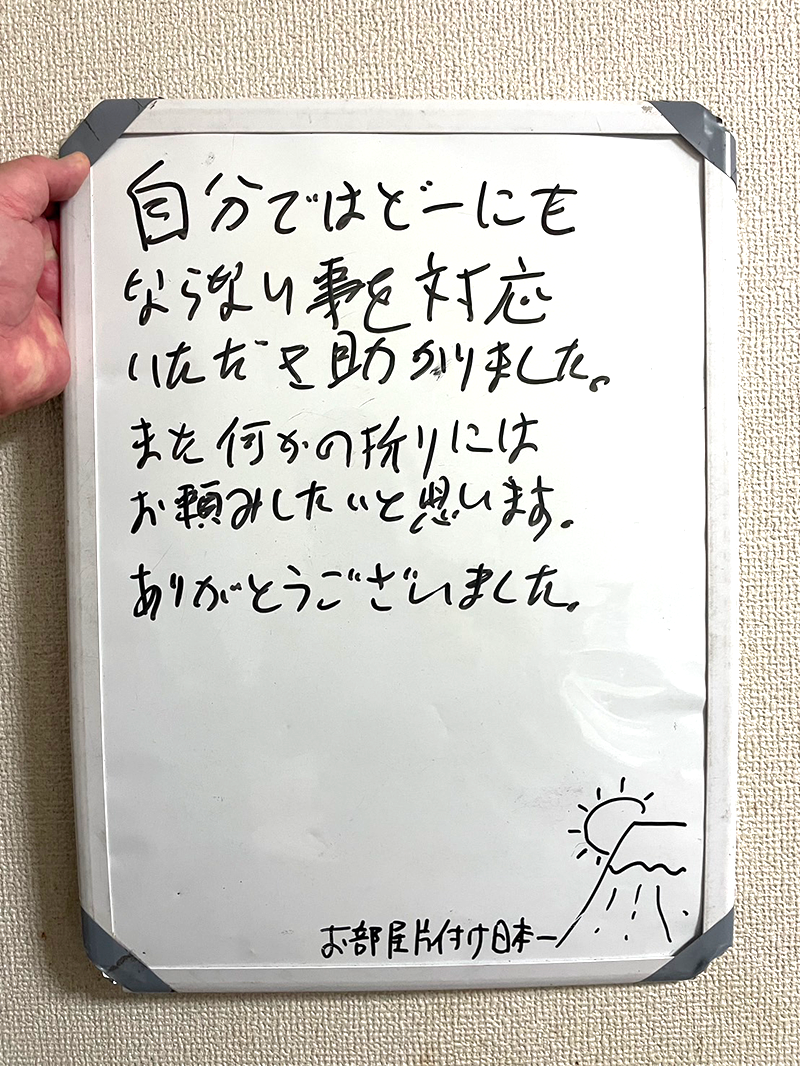 自分ではどーにも
ならない事を対応
いただき助かりました。
また何かの折りには
お頼みしたいと思います。
ありがとうございました。
お部屋片付け日本一